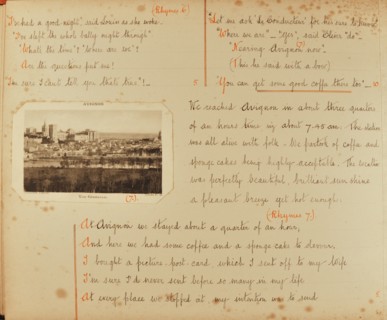 (Rhymes 6)
I've had a good night", said Louie as she woke.
"I've slept the whole balmy night through"
"What's the time"? "Where are we"?
Are the questions put me!
"I'm sure I can't tell you that's true"!
"Let me ask the Conductor" for he's sure to know".
"Where are we" "Yes", said Oliver "do".
"Nearing Avignon now".
(This he said with a bow)
"You can get some good coffee there too".
AVIGNON
(7)
We reached Avignon in about three quarters
of an hours time viz about 7.45 am. The station
was all alive with folk. We partook of coffee and
sponge cakes being highly acceptable. The weather
was perfectly beautiful, brilliant sun shine
a pleasant breeze yet not enough.
(Rhymes 7)
At Avignon we stayed about a quarter of an hour,
And here we had some coffee and a sponge cake to devour,
I bought a picture post-card which I sent off to my Wife
I'm sure I'd never sent before so many in my life
At every place we stopped at, my intention was to send